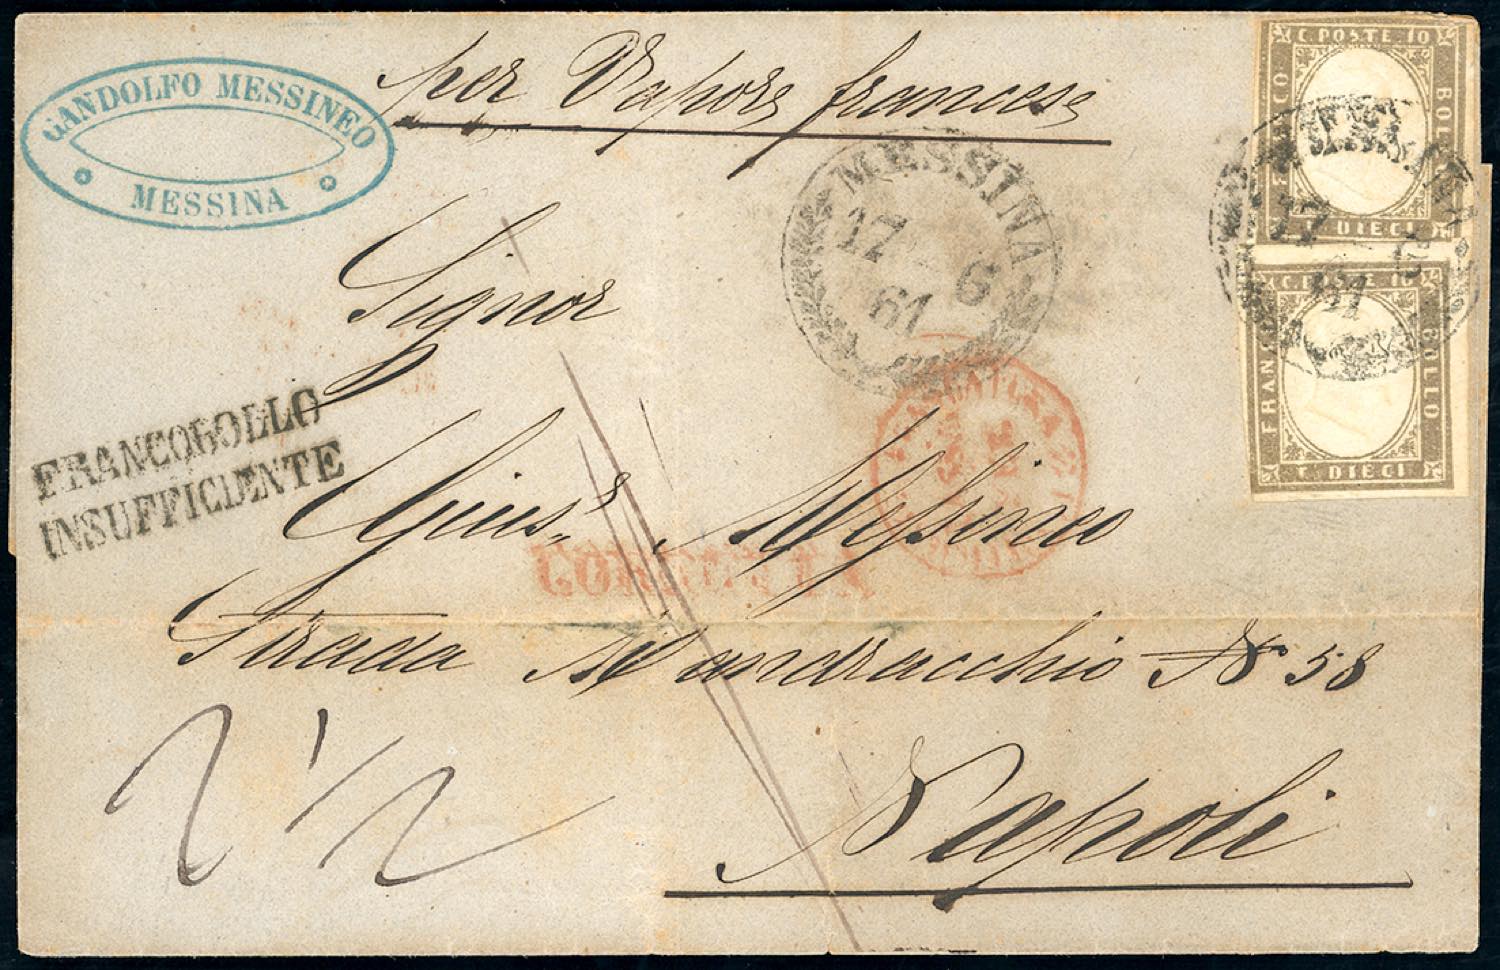 GANDOLFO MESSINEO
MESSINA
per Vapore francese
C. POSTE 10
BOLLO
C. DIECI
MESSINA
17 6
61
17
61
C. POSTE 10
FRANCO
BOLLO
C. DIECI
Signor
FRANCOBOLLO
INSUFFICIENTE
Gius.e Messineo
Strada Mandracchio N 58
2 1/2
Napoli